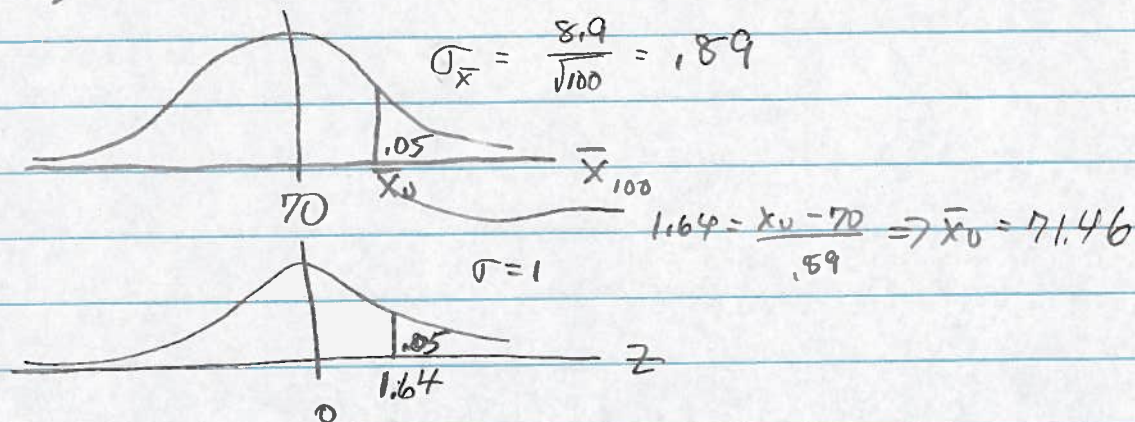 σx̄ = 8.9/√100 = .89
.05
x̄₁₀₀
70
x̄₀
1.64 = x₀ - 70/.89 => x̄₀ = 71.46
σ = 1
.05
z
1.64
0